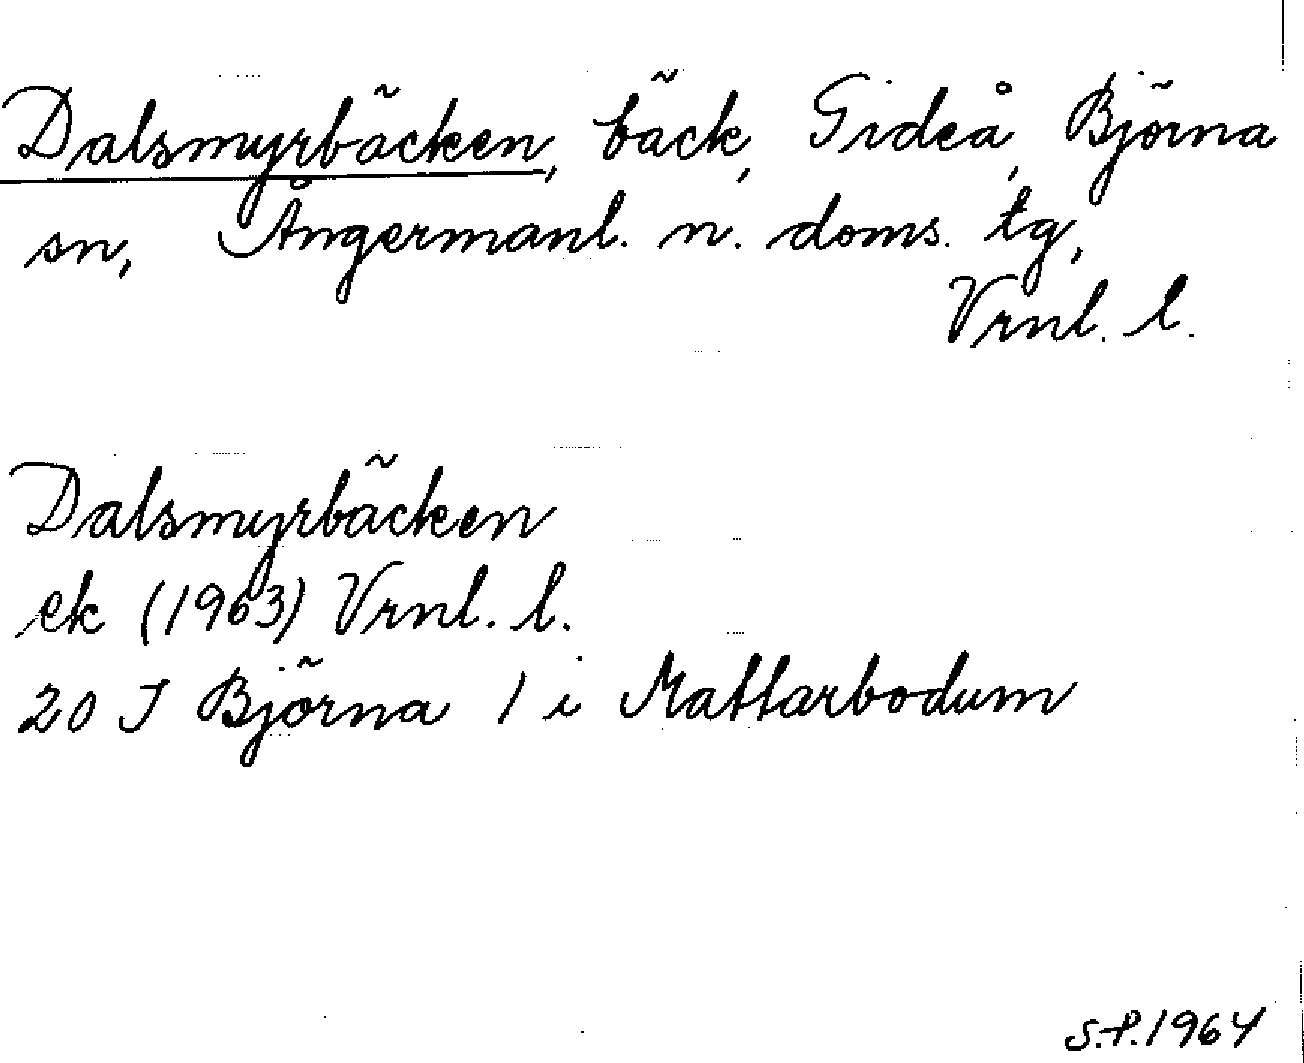 Dalsmyrbäcken, bäck, Gideå, Björna
sn, Ångermanl. n. doms. tg,
Vrnl. l.
Dalsmyrbäcken
ek (1963) Vrnl. l.
20 J Björna 1 i Mattarbodum
S.P. 1964